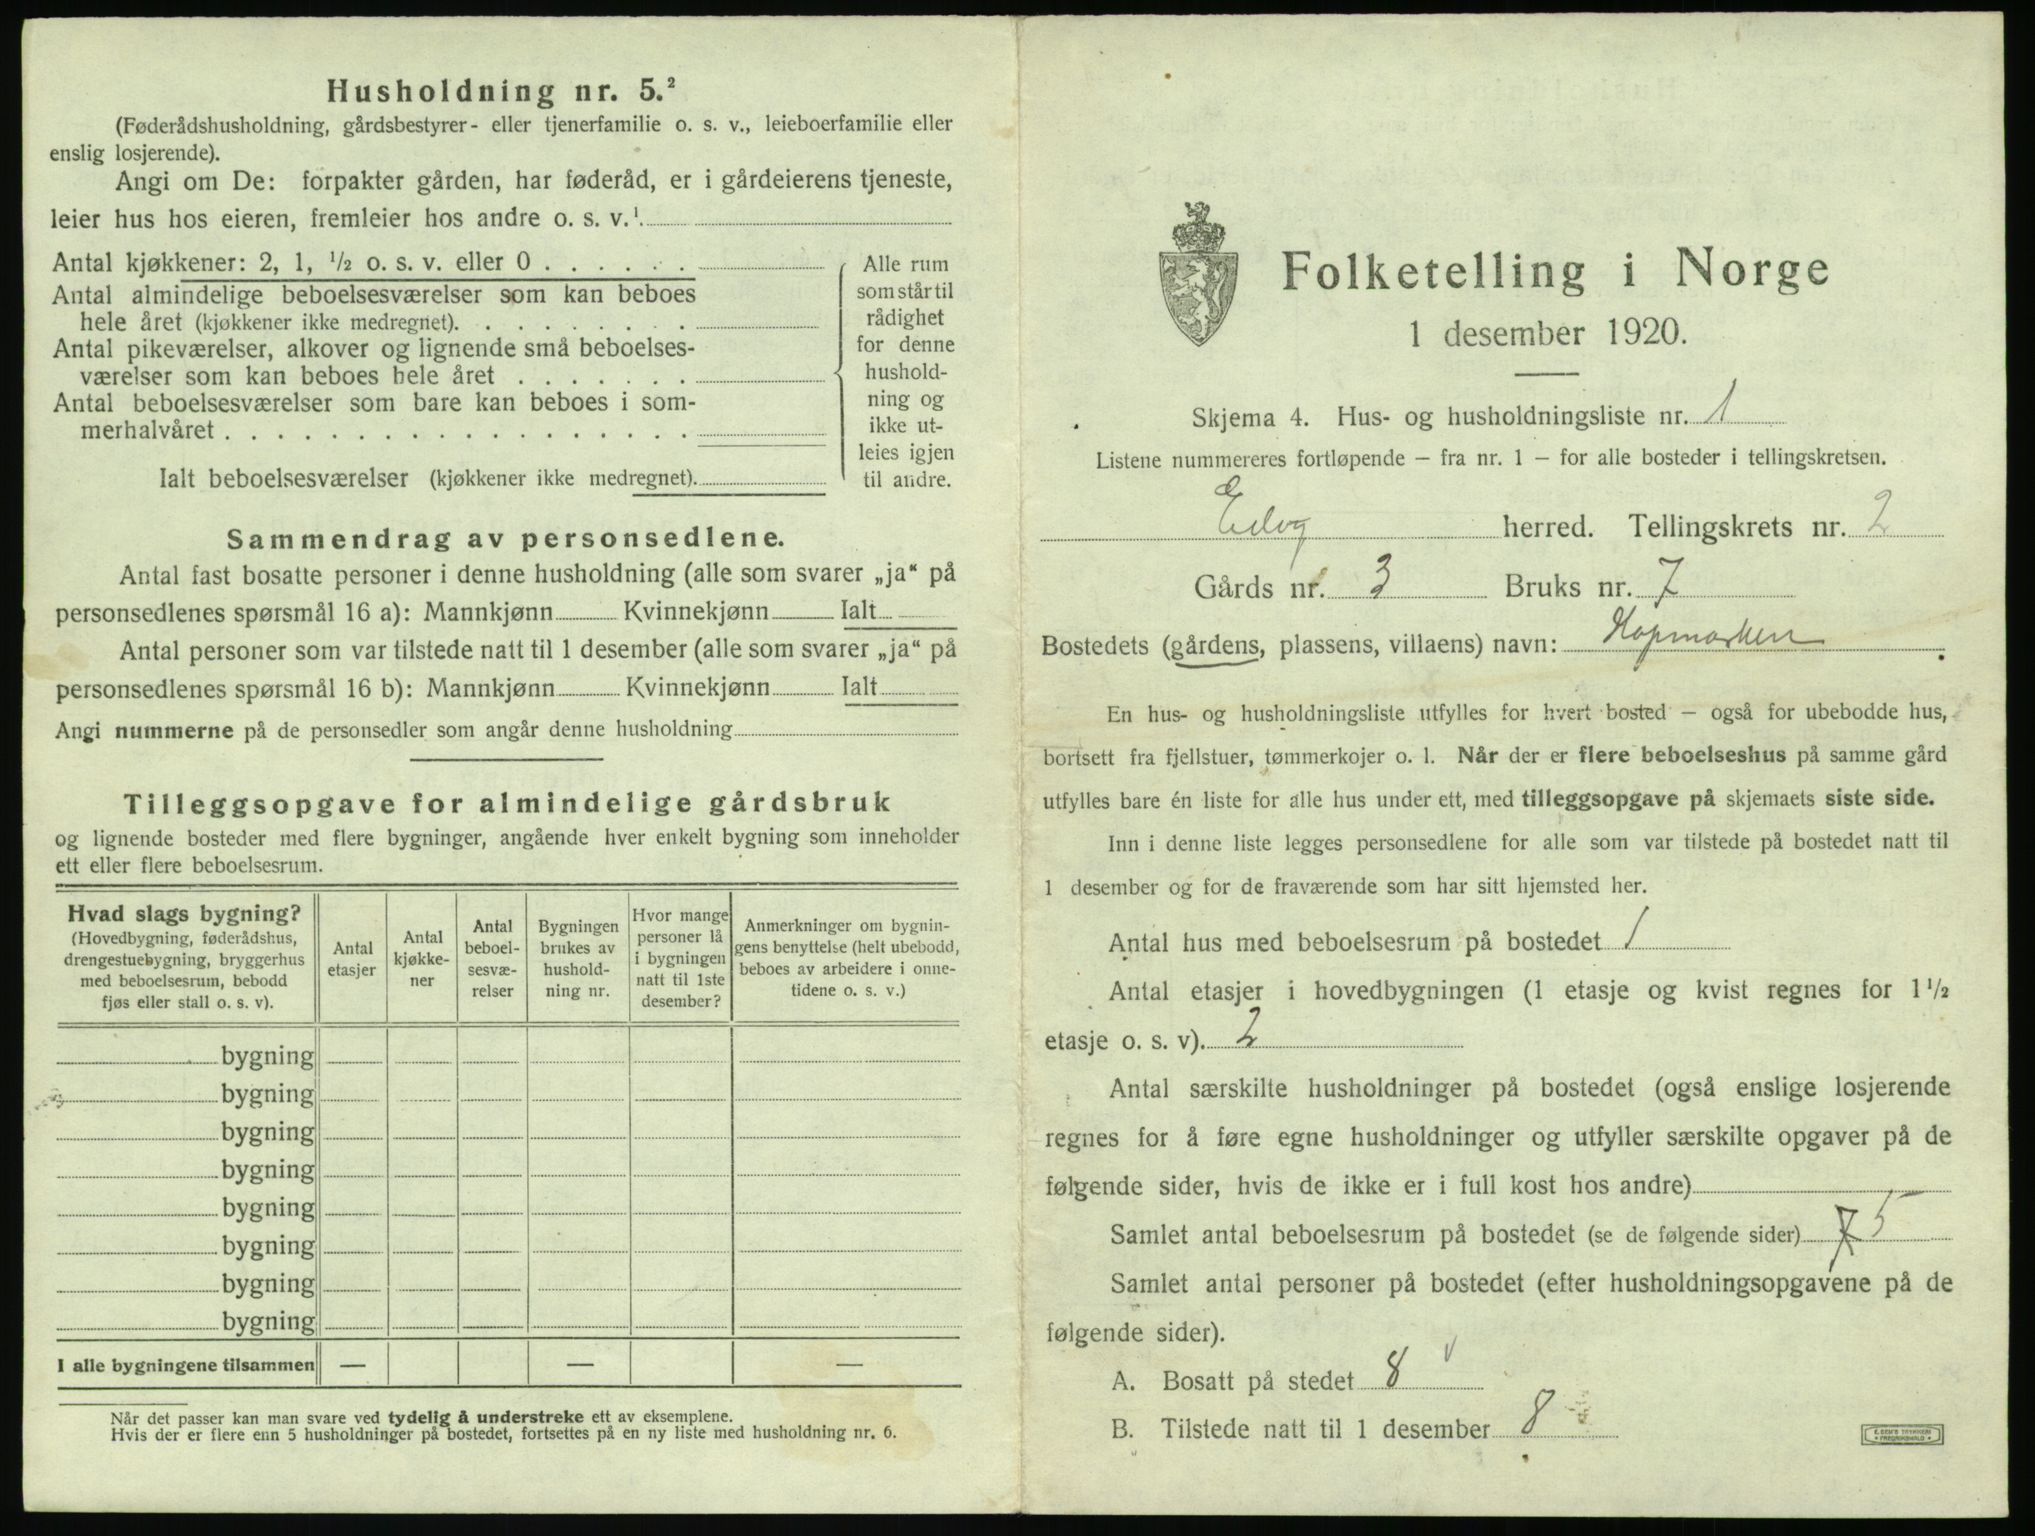 Husholdning nr. 5.²
(Føderådshusholdning, gårdsbestyrer- eller tjenerfamilie o. s. v., leieboerfamilie eller
enslig losjerende).
Angi om De: forpakter gården, har føderåd, er i gårdeierens tjeneste,
leier hus hos eieren, fremleier hos andre o. s. v.¹
Antal kjøkkener: 2, 1, ½ o. s. v. eller 0 . . . . . .
Antal almindelige beboelsesværelser som kan beboes
hele året (kjøkkener ikke medregnet). . . . . . . . .
Antal pikeværelser, alkover og lignende små beboelses-
værelser som kan beboes hele året . . . . . . .
Antal beboelsesværelser som bare kan beboes i som-
merhalvåret . . . . . . . . . . . . . . . . . .
Ialt beboelsesværelser (kjøkkener ikke medregnet).
Alle rum
som står til
rådighet
for denne
hushold-
ning og
ikke ut-
leies igjen
til andre.
Sammendrag av personsedlene.
Antal fast bosatte personer i denne husholdning (alle som svarer „ja“ på
personsedlenes spørsmål 16 a): Mannkjønn Kvinnekjønn Ialt
Antal personer som var tilstede natt til 1 desember (alle som svarer „ja“ på
personsedlenes spørsmål 16 b): Mannkjønn Kvinnekjønn Ialt
Angi nummerne på de personsedler som angår denne husholdning
Tilleggsopgave for almindelige gårdsbruk
og lignende bosteder med flere bygninger, angående hver enkelt bygning som inneholder
ett eller flere beboelsesrum.
Hvad slags bygning?
(Hovedbygning, føderådshus,
drengestuebygning, bryggerhus
med beboelsesrum, bebodd
fjøs eller stall o. s. v).
Antal
etasjer
Antal
kjøkke-
ner
Antal
beboel-
sesvæ-
relser
Bygningen
brukes av
hushold-
ning nr.
Hvor mange
personer lå
i bygningen
natt til 1ste
desember?
Anmerkninger om bygnin-
gens benyttelse (helt ubebodd,
beboes av arbeidere i onne-
tidene o. s. v.)
bygning
bygning
bygning
bygning
bygning
bygning
bygning
bygning
I alle bygningene tilsammen — — —
Når det passer kan man svare ved tydelig å understreke ett av eksemplene.
Hvis der er flere enn 5 husholdninger på bostedet, fortsettes på en ny liste med husholdning nr. 6.
Folketelling i Norge
1 desember 1920.
Skjema 4. Hus- og husholdningsliste nr. 1
Listene nummereres fortløpende – fra nr. 1 – for alle bosteder i tellingskretsen.
Edøy herred. Tellingskrets nr. 2
Gårds nr. 3 Bruks nr. 7
Bostedets (gårdens, plassens, villaens) navn: Hopmarken
En hus- og husholdningsliste utfylles for hvert bosted – også for ubebodde hus,
bortsett fra fjellstuer, tømmerkojer o. l. Når der er flere beboelseshus på samme gård
utfylles bare én liste for alle hus under ett, med tilleggsopgave på skjemaets siste side.
Inn i denne liste legges personsedlene for alle som var tilstede på bostedet natt til
1 desember og for de fraværende som har sitt hjemsted her.
Antal hus med beboelsesrum på bostedet 1
Antal etasjer i hovedbygningen (1 etasje og kvist regnes for 1½
etasje o. s. v). 2
Antal særskilte husholdninger på bostedet (også enslige losjerende
regnes for å føre egne husholdninger og utfyller særskilte opgaver på de
følgende sider, hvis de ikke er i full kost hos andre)
Samlet antal beboelsesrum på bostedet (se de følgende sider) 7 5
Samlet antal personer på bostedet (efter husholdningsopgavene på de
følgende sider).
A. Bosatt på stedet 8 v
B. Tilstede natt til 1 desember 8